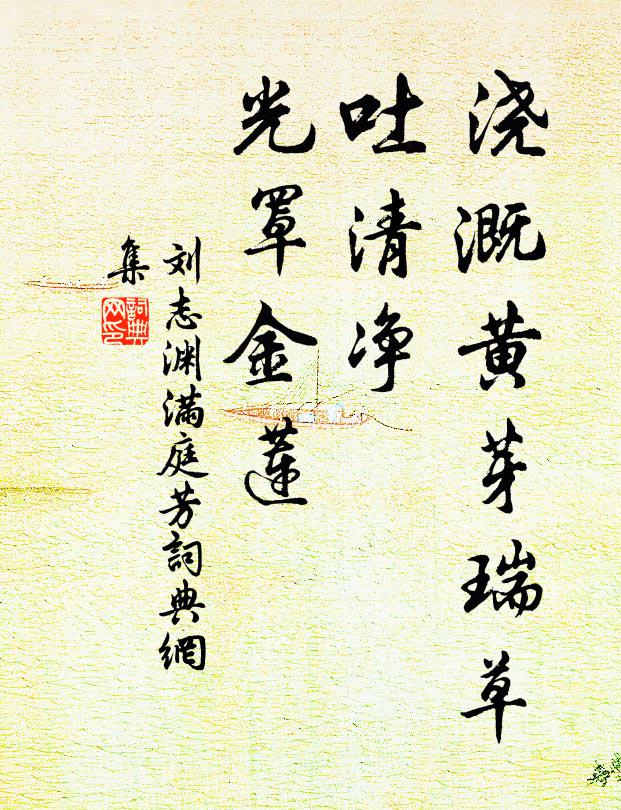 浇溉黄芽瑞草
吐清净
光罩金莲
刘志渊满庭芳詞典網
集
詞典
网印